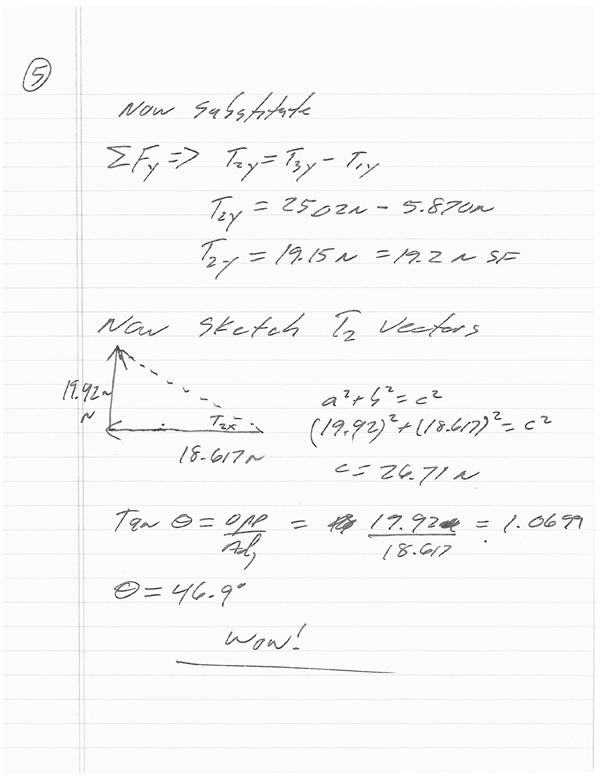 5
Now substitute
ΣFy => T2y = T3y - T1y
T2y = 25.02N - 5.870N
T2-y = 19.15 N = 19.2 N SF
Now sketch T2 vectors
19.92N
N
T2x
18.617N
a²+b²=c²
(19.92)²+(18.617)²=c²
c=26.71 N
Tan θ = opp/Adj = 19.92/18.617 = 1.0699
θ=46.9°
Wow!